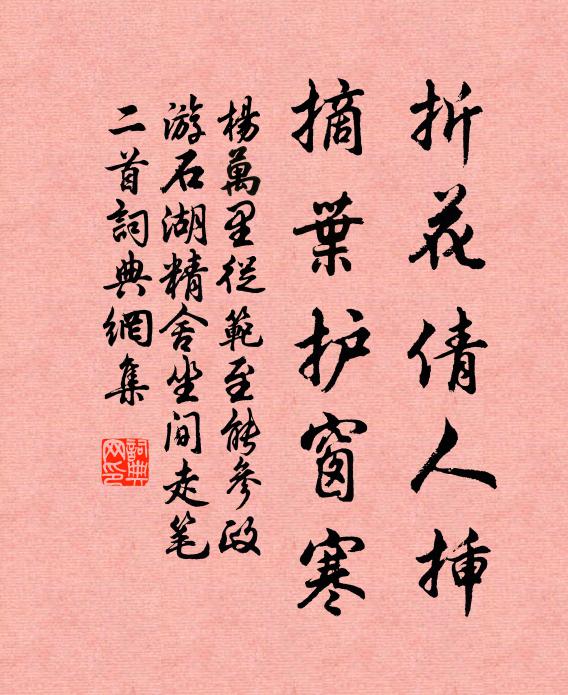 折花倩人揷
摘葉护窗寒
楊萬里從範至能參政
游石湖精舍坐间走笔
二首詞典網集
詞典网印